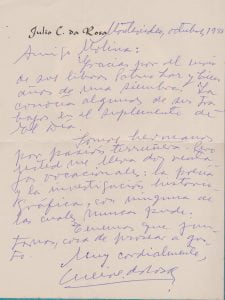 Julio C. da Rosa
Montevideo, octubre, 19
Amigo Molina:
Gracias por el envío
de sus libros
años de una siembra. Ya
conocía algunos de sus tra
bajos en el suplemento de
"El Día".
Somos hermanos
por pasión terruñera. Pero
usted me lleva dos venta
jas vocacionales: la poesía
y la investigación historio
gráfica; con ninguna de
las cuales nunca pude.
Tenemos que jun
tarnos, cosa de prosear a gus
to.
Muy cordialmente,